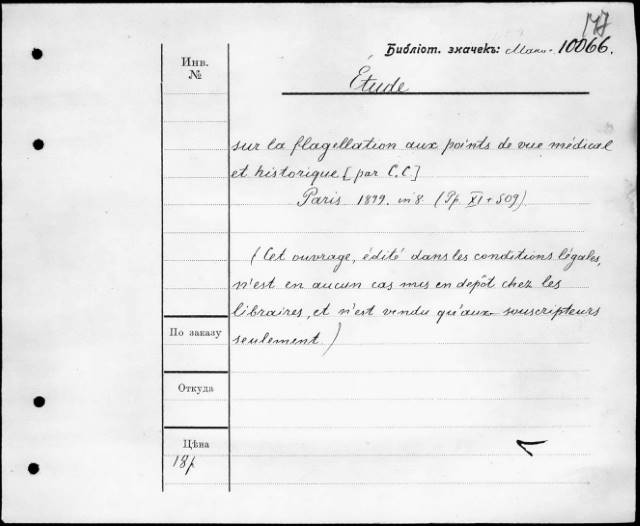 147
Библіот. значекъ: Макс. 10066.
Инв.
№
Étude
sur la flagellation aux points de vue médical
et historique [par C.C.]
Paris 1899. in 8. (Pp. XI + 509).
(Cet ouvrage, édité dans les conditions légales,
n'est en aucun cas mis en depôt chez les
libraires, et n'est vendu qu'aux souscripteurs
seulement.)
По заказу
Откуда
Цѣна
18